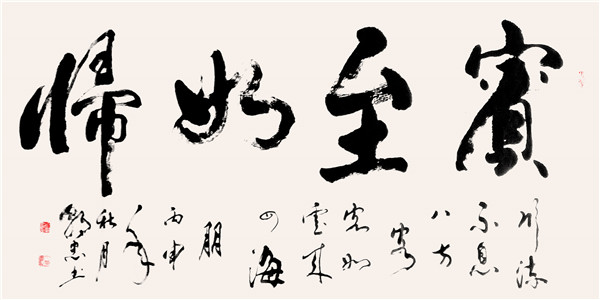 賓至如歸
川流
不息
八方
客
宛如
雲來
四海
朋
丙申
年
秋月
书